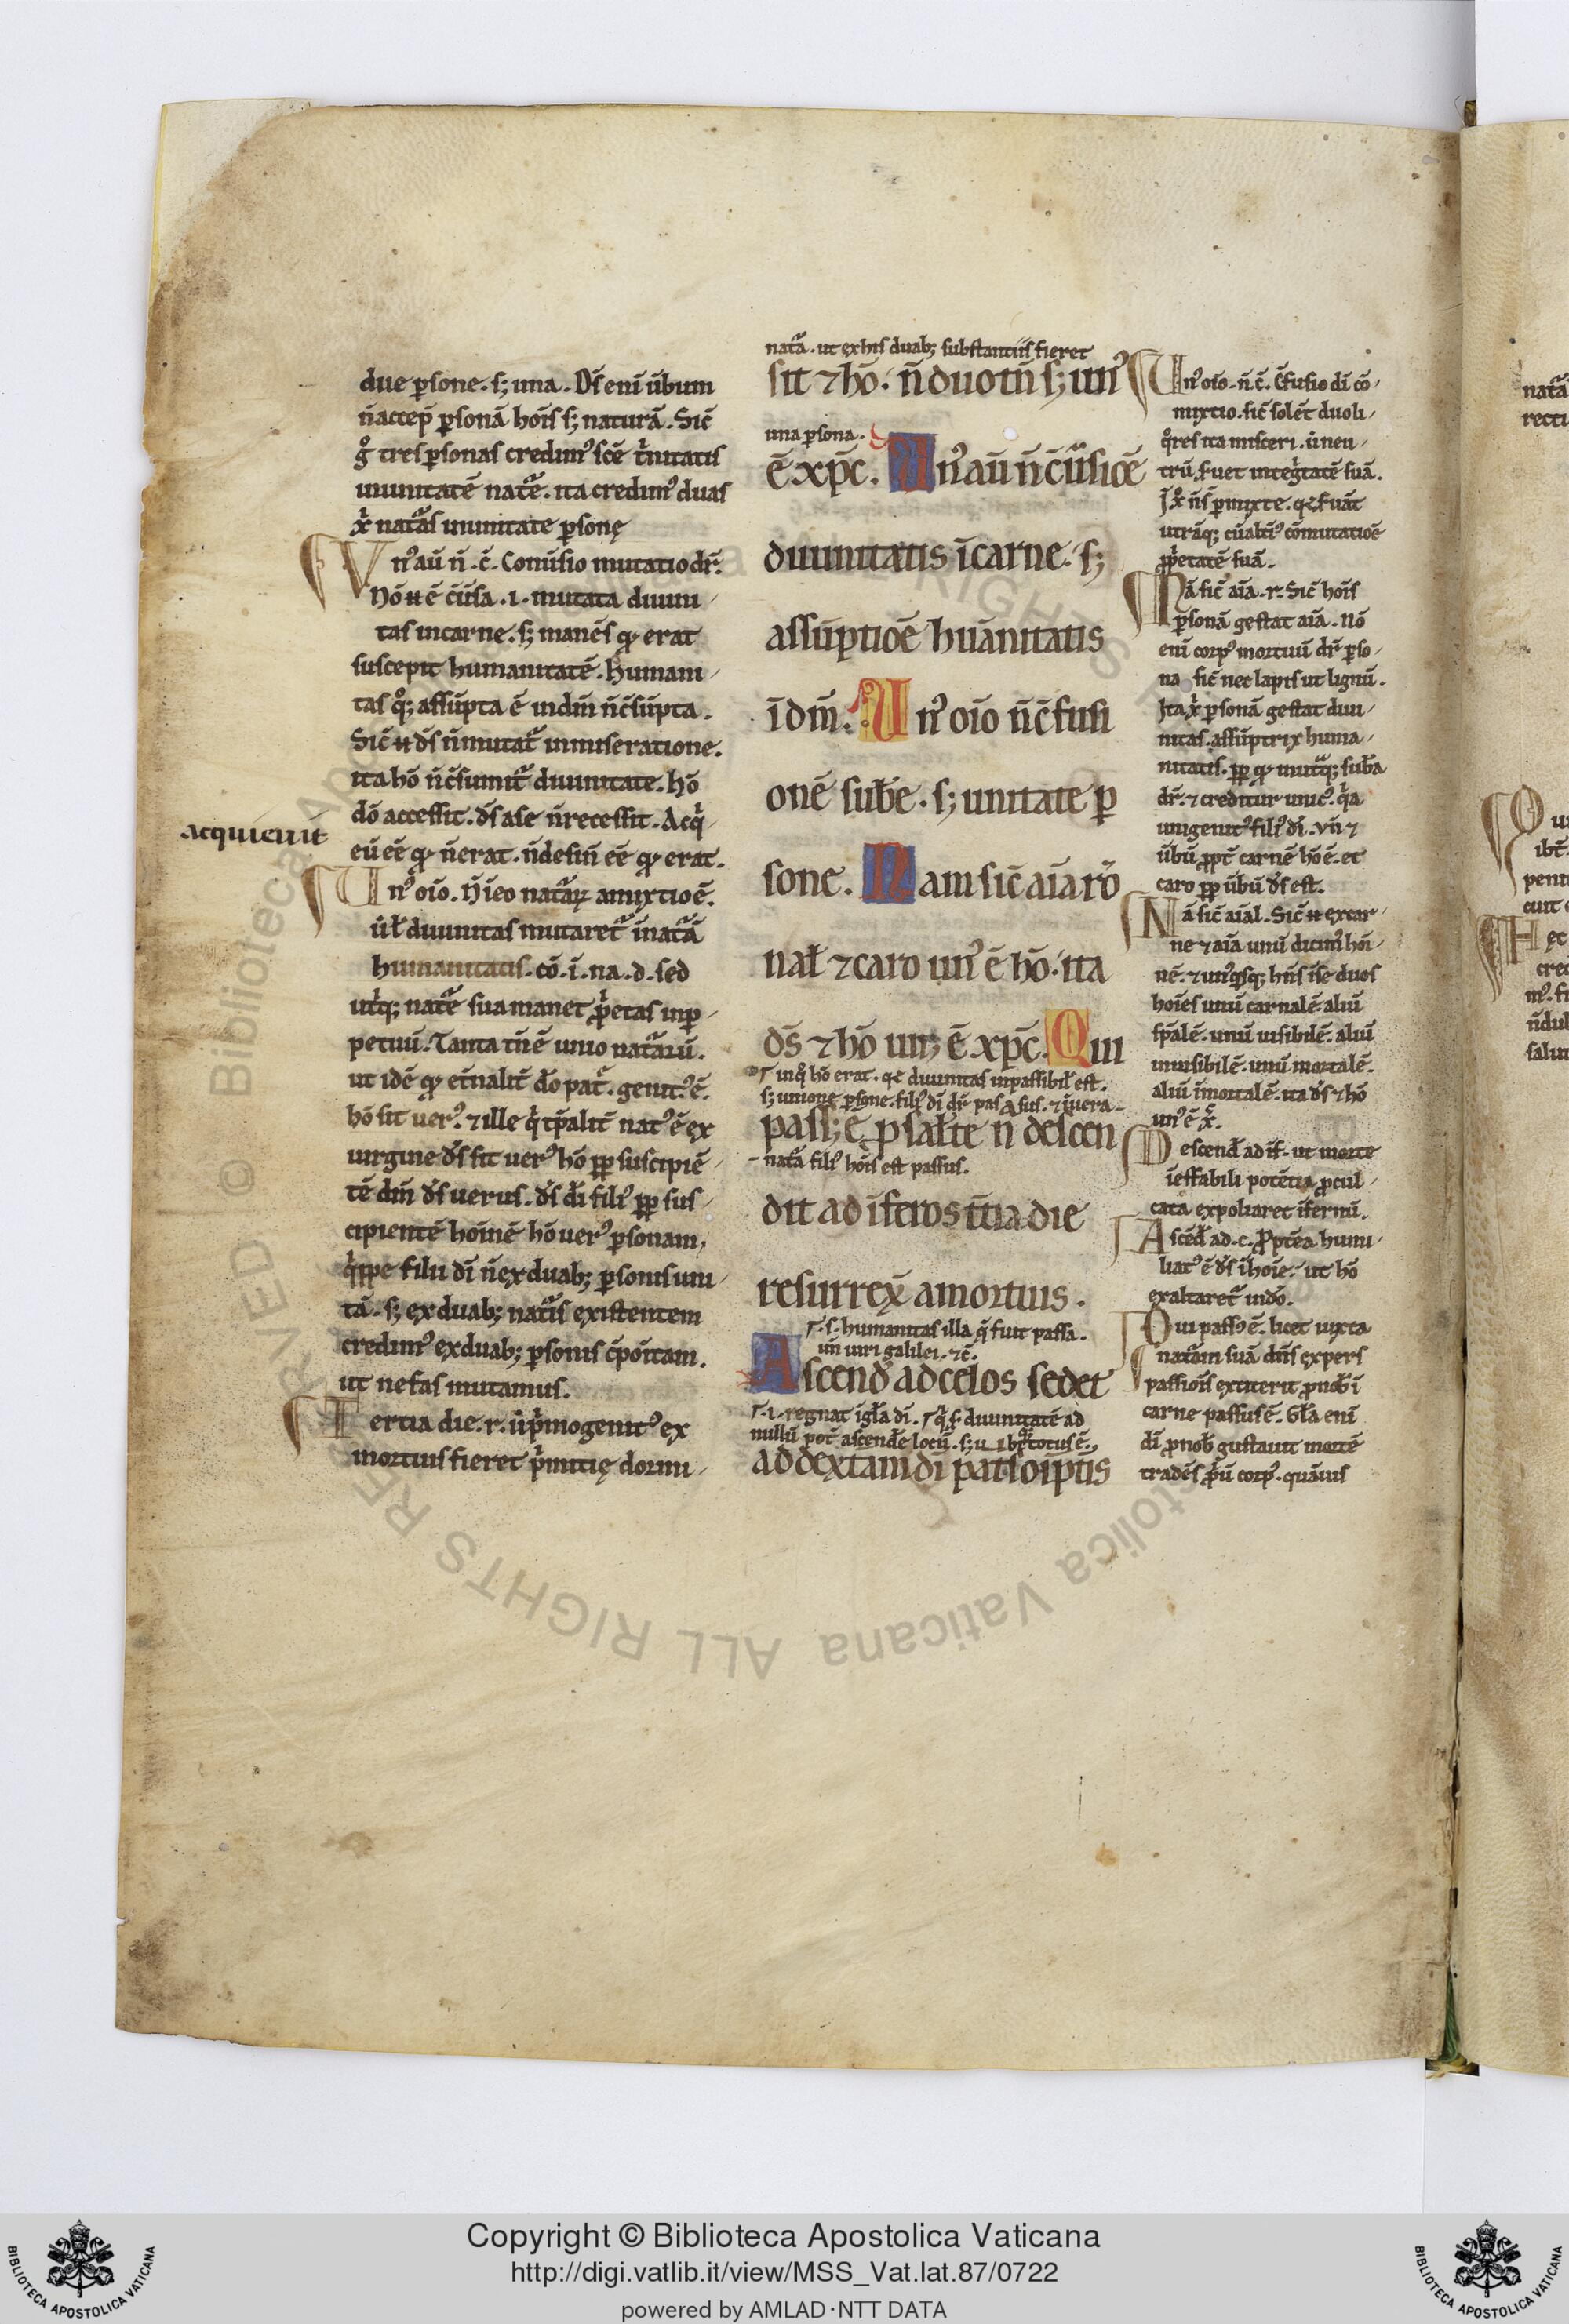 due ꝑsone. sꝫ una. Ds̄ eni ūbum
n̄ accep̄ ꝑsonā hoīs sꝫ naturā. Sic̄
g̊ tres ꝑsonas credim᷒ sc̄e t̄nitatis
in unitatē nat᷑e. ita credim᷒ duas
xp̄i nat᷑as in unitate ꝑsonę
Vn᷒ aū n̄. c̄. Conūsio mutatio dr̄.
Nō ē c̄ūsa .i. mutata diuini
tas in carne. sꝫ manēs qď erat
suscepit humanitatē. humani
tas q̊ꝫ assūpta ē in dm̄ n̄ c̄sūpta.
Sic̄ ds̄ n̄ mutat᷑ in miseratione.
ita hō n̄ c̄sumit᷑ diuinitate. hō
dō accessit. ds̄ a se n̄ recessit. Acq̇
acquieuit
eū eē qď n̄ erat. n̄ desin̄ eē qď erat.
Un᷒ oīo. N̄ ī eo nat᷑aꝝ amixtio ē.
ūl̄ diuinitas mutaret᷑ ī nat᷑ā
humanitatis. cō. ī. na. d. sed
utq̇ꝫ nat᷑e sua manet ꝓṗetas in ꝑ
petuū. Tanta tn̄ ē unio nat᷑arū.
ut idē qď et̄nalit̄ do pat᷑. genit᷒ ē.
hō sit uer᷒. ⁊ ille q̇ tp̄alit̄ nat᷒ ē ex
uirgine ds̄ sit uer᷒ hō ꝓp̄ suscipiē
tē dm̄ ds̄ uerus. ds̄ dī fili᷒ ꝓp̄ sus
cipientē hoīnē hō uer᷒ ꝑsonam,
q̇ppe filii dī n̄ ex duabꝫ ꝑsonis uni
tā. sꝫ ex duabꝫ nat᷑is existentem
credim᷒ ex duabꝫ ꝑsonis c̄po̅itam.
ut nefas mutamus.
Tertia die. r. ū p̄mogenit᷒ ex
mortuis fieret p̄mitię dormi
nat᷑a. ut ex his duabꝫ substantiis fieret
sit ⁊ hō. n̄ duo tn̄ sꝫ un᷒
una ꝑsona.
ē xp̄c. Un᷒ aū n̄ c̄ūsiōe
diuinitatis ī carne. sꝫ
assūptiōe huānitatis
ī dm̄. Un᷒ oīo n̄ c̄fusi
onē sub̄e. sꝫ unitate ꝑ
sone. Nam sic̄ aīa ro̅
nal̄ ⁊ caro un᷒ ē hō. ita
ds̄ ⁊ hō un᷒ ē xp̄c. Qui
inq̊ hō erat. qꝛ diuinitas inpassibil̄ est.
sꝫ unione ꝑsone. fili᷒ dī dr̄ passus. ⁊ ī uera
pass᷒ ē ꝑ sal̄te n̄ descen
nat᷑a fili᷒ hoīs est passus.
dit ad īferos t̄tia die
resurrex̄ a mortuis.
.s. humanitas illa q̄ fuit passa.
un̄ uiri galilei. ⁊c̄.
Ascend̄ ad celos sedet
.i. regnat ī gl̄a dī. q̇ ẜ diuinitatē ad
nullū pot̄ ascend̄e locū. sꝫ ubiq̇ totus ē.
ad dext̄am dī pat̄s oīptīs
Un᷒ oīo. n̄. c̄. C̄fusio dī cō
mixtio. sic̄ solēt duoli
q̊res ita misceri. ū neu
trū ẜuet inteġtatē suā.
Ī xp̊ n̄ s̄ ꝑmixte. qꝛ ẜuāt
utrāqꝫ cū alt̄i᷒ cōmutatiōe
ꝓṗetatē suā.
Nā sic̄ aīa. r. Sic̄ hoīs
ꝑsonā gestat aīa. nō
enī corp᷒ mortuū dr̄ ꝑso
na sic̄ nec lapis ut lignū.
Ita xp̄i ꝑsonā gestat diui
nitas. assūptrix huma
nitatis. ꝓp̄ qď
dr̄. ⁊ creditur unic᷒. q̇a
unigenit᷒ fili᷒ dī. vn̄ ⁊
ūbū ꝓpt̄ carnē hō ē. et
caro ꝓp̄ ūbū ds̄ est.
Nā sic̄ aīa l. Sic̄ ex car
ne ⁊ aīa unū dicim᷒ hoī
nē. ⁊ un᷒q̇sqꝫ hn̄s ī se duos
hoīes unū carnalē. aliū
sp̄alē. unū uisibilē. aliū
inuisibilē. unū mortalē.
aliū īmortalē. ita ds̄ ⁊ hō
un᷒ ē xp̄c.
Descend̄ ad if̄. ut morte
īeffabili potētia ꝓcul
cata expoliaret īfernū.
Ascēd̄ ad. c. Propt̄ea humi
liat᷒ ē ds̄ ī hoīe. ut hō
exaltaret᷑ in dō.
Qui pass᷒ ē. licet iuxta
nat᷑am suā dn̄s expers
passiois̄ extiterit ꝓ nob̄ ī
carne passus ē. Gl̄a enī
dī ꝓ nob̄ gustauit mortē
tradēs ꝓṗū corp᷒. quāuis
Copyright © Biblioteca Apostolica Vaticana
http://digi.vatlib.it/view/MSS_Vat.lat.87/0722
powered by AMLAD·NTT DATA
BIBLIOTECA APOSTOLICA VATICANA
BIBLIOTECA APOSTOLICA VATICANA